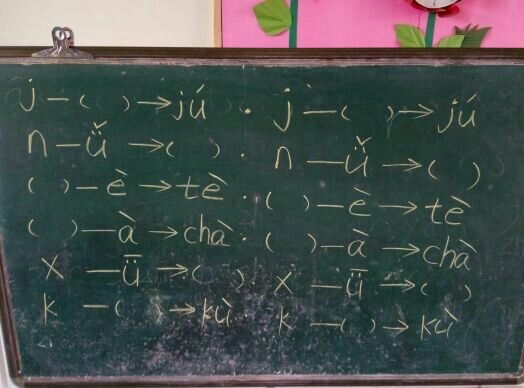 j — ( ) → jú · j — ( ) → jú
n — ǚ → ( ) · n — ǚ → ( )
( ) — è → tè · ( ) — è → tè
( ) — à → chà · ( ) — à → chà
x — ǖ → ( ) , x — ǖ → ( )
k — ( ) → kù · k — ( ) → kù